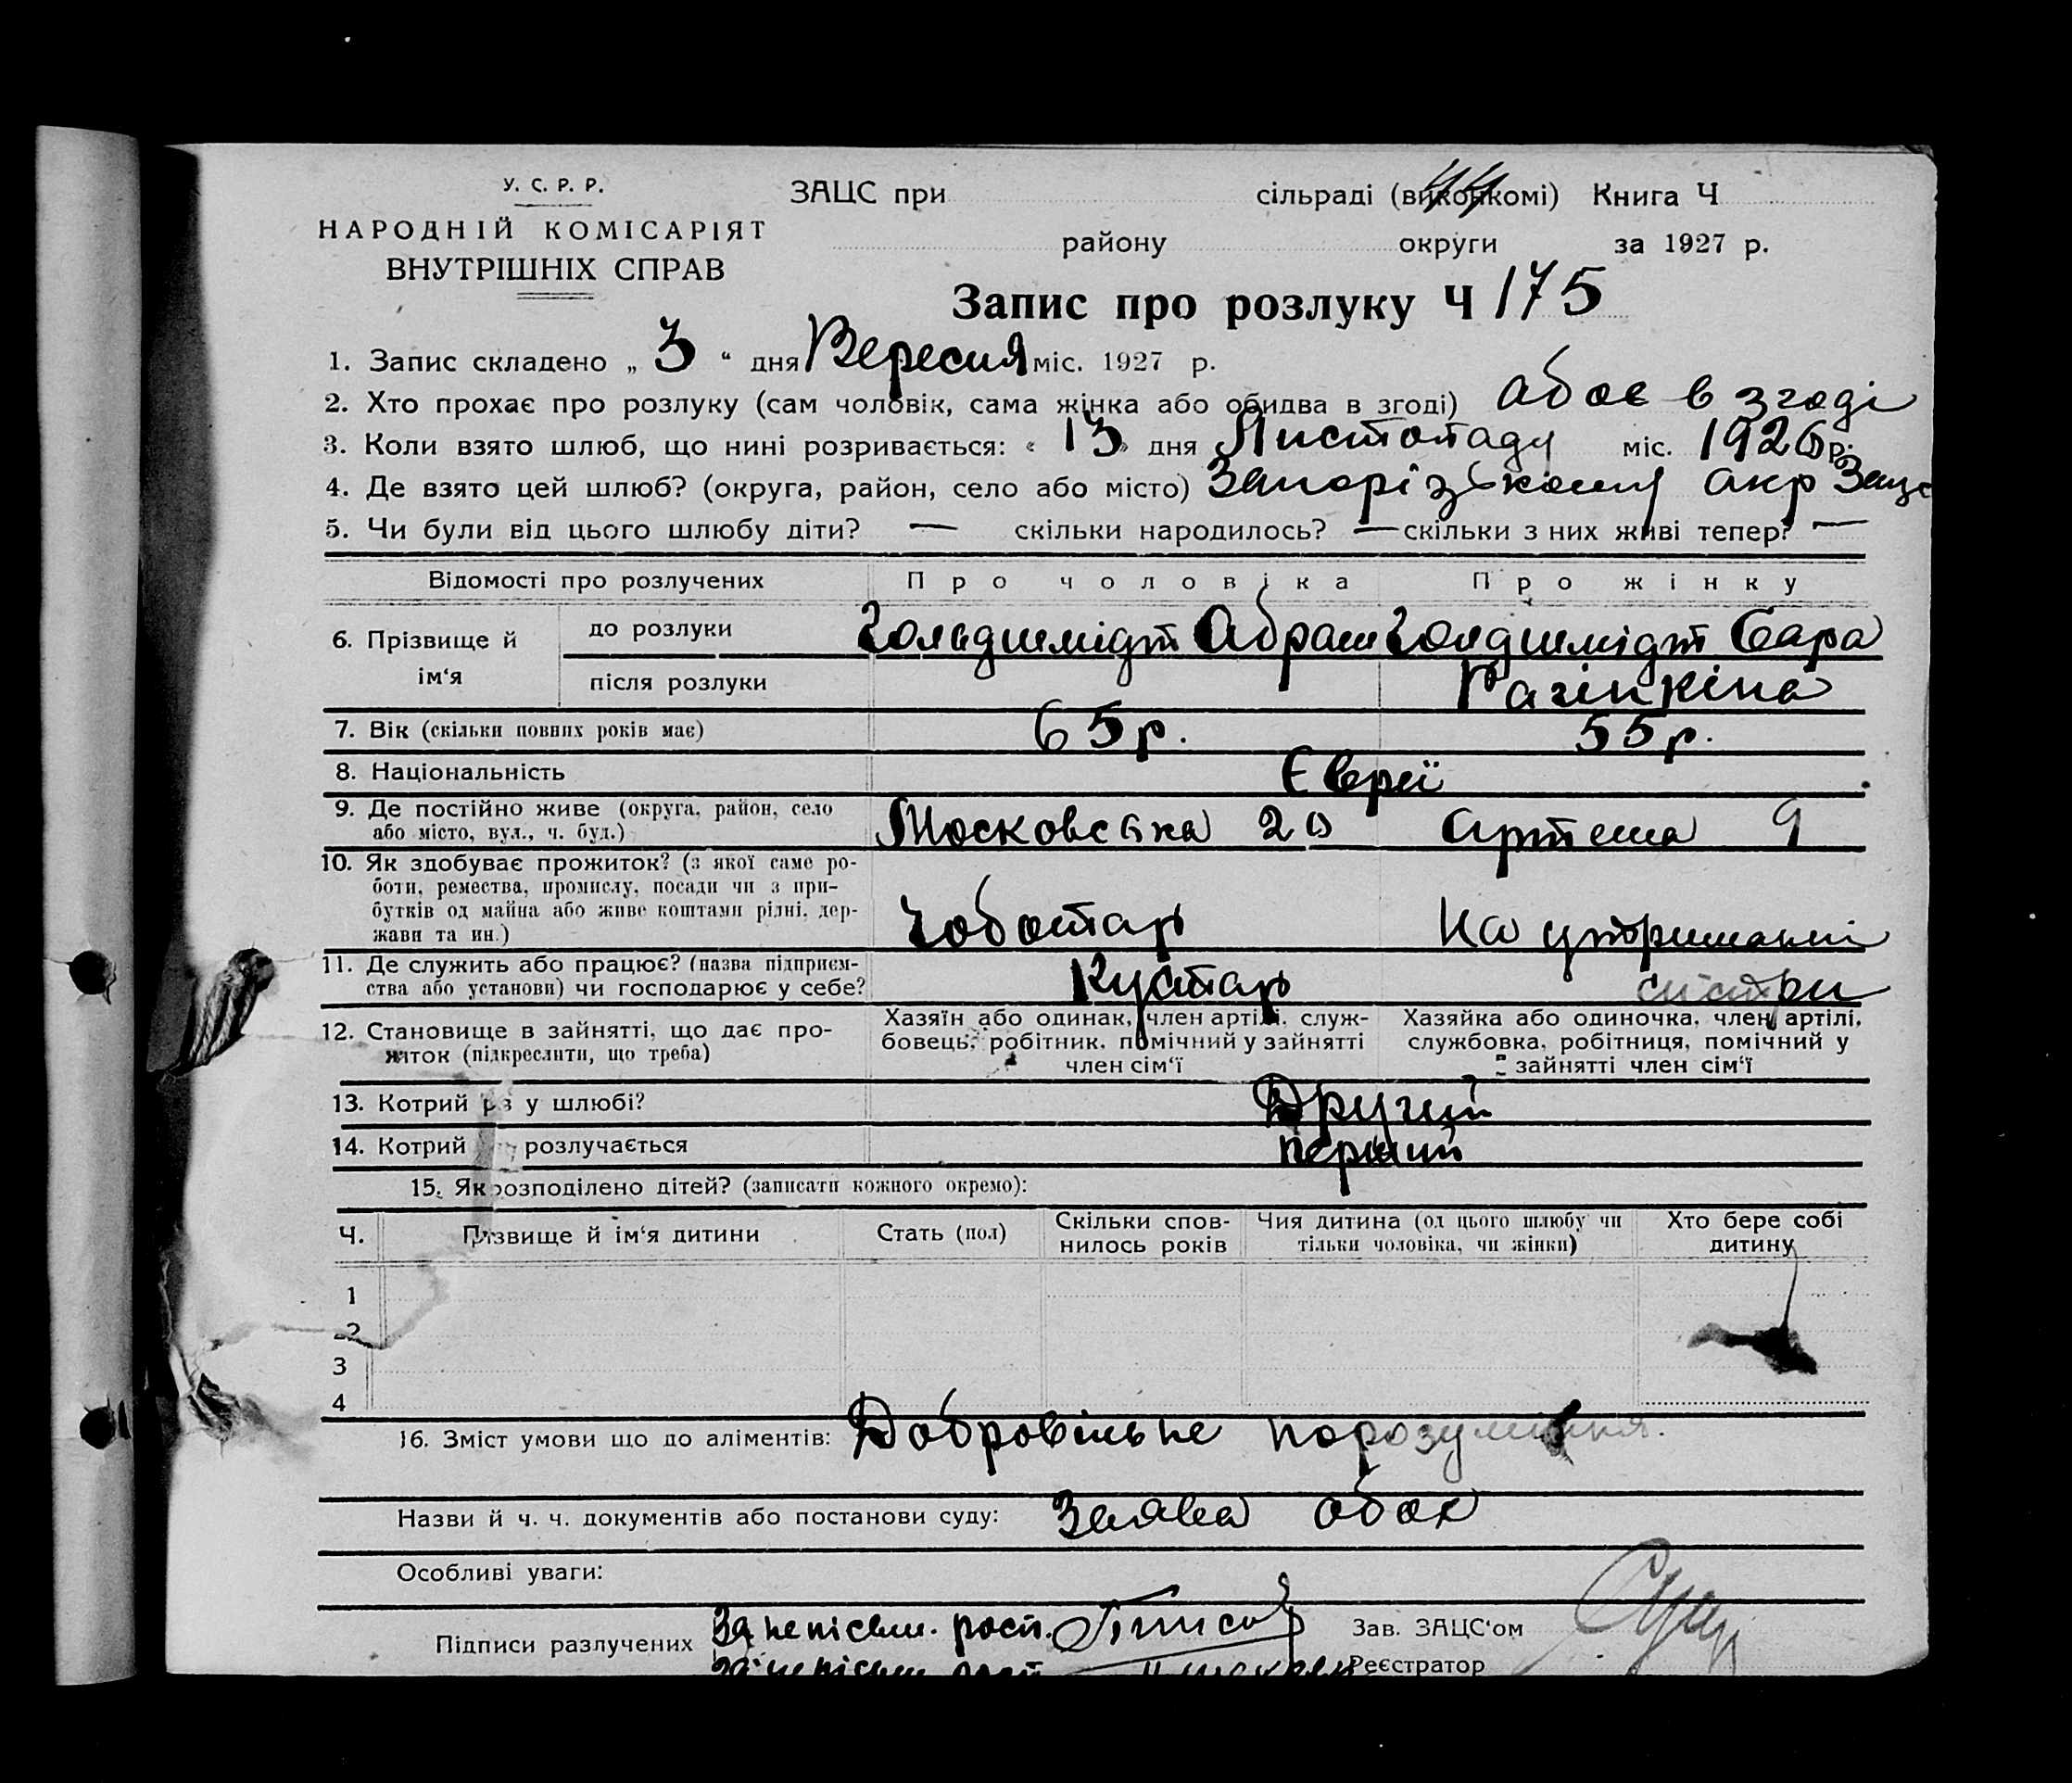 У. С. Р. Р.
НАРОДНІЙ КОМІСАРІЯТ
ВНУТРІШНІХ СПРАВ
ЗАЦС при сільраді (виконкомі) Книга Ч
району округи за 1927 р.
Запис про розлуку Ч 175
1. Запис складено „ 3 “ дня Вересня міс. 1927 р.
2. Хто прохає про розлуку (сам чоловік, сама жінка або обидва в згоді) обоє в згоді
3. Коли взято шлюб, що нині розривається: « 13 » дня Листопаду міс. 1926 р.
4. Де взято цей шлюб? (округа, район, село або місто) Запорізькому окр Зацс
5. Чи були від цього шлюбу діти? — скільки народилось? — скільки з них живі тепер? —
Відомості про розлучених Про чоловіка Про жінку
6. Прізвище й ім‘я
до розлуки Гольдшмідт Абрам Голдшмідт Сара
після розлуки
7. Вік (скільки повних років має) 65 р. 55 р.
8. Національність Євреї
9. Де постійно живе (округа, район, село
або місто, вул., ч. буд.) Московська 20 Артема 9
10. Як здобуває прожиток? (з якої саме ро-
боти, ремества, промислу, посади чи з при-
бутків од майна або живе коштами рідні, дер-
жави та ин.) Чоботар На утриманні
11. Де служить або працює? (назва підприєм-
ства або установи) чи господарює у себе? Кустар сістри
12. Становище в зайнятті, що дає про-
житок (підкреслити, що треба)
Хазяїн або одинак, член артілі, служ-
бовець, робітник, помічний у зайнятті
член сім‘ї
Хазяйка або одиночка, член артілі,
службовка, робітниця, помічний у
зайнятті член сім‘ї
13. Котрий раз у шлюбі? Другий
14. Котрий розлучається перший
15. Як розподілено дітей? (записати кожного окремо):
Ч. Прізвище й ім‘я дитини Стать (пол) Скільки спов-
нилось років Чия дитина (од цього шлюбу чи
тільки чоловіка, чи жінки) Хто бере собі
дитину
1
2
3
4
16. Зміст умови що до аліментів: Добровільне порозуміння.
Назви й ч. ч. документів або постанови суду: Заява обох
Особливі уваги:
Підписи разлучених За непісьм. росп.
Зав. ЗАЦС‘ом
Реєстратор